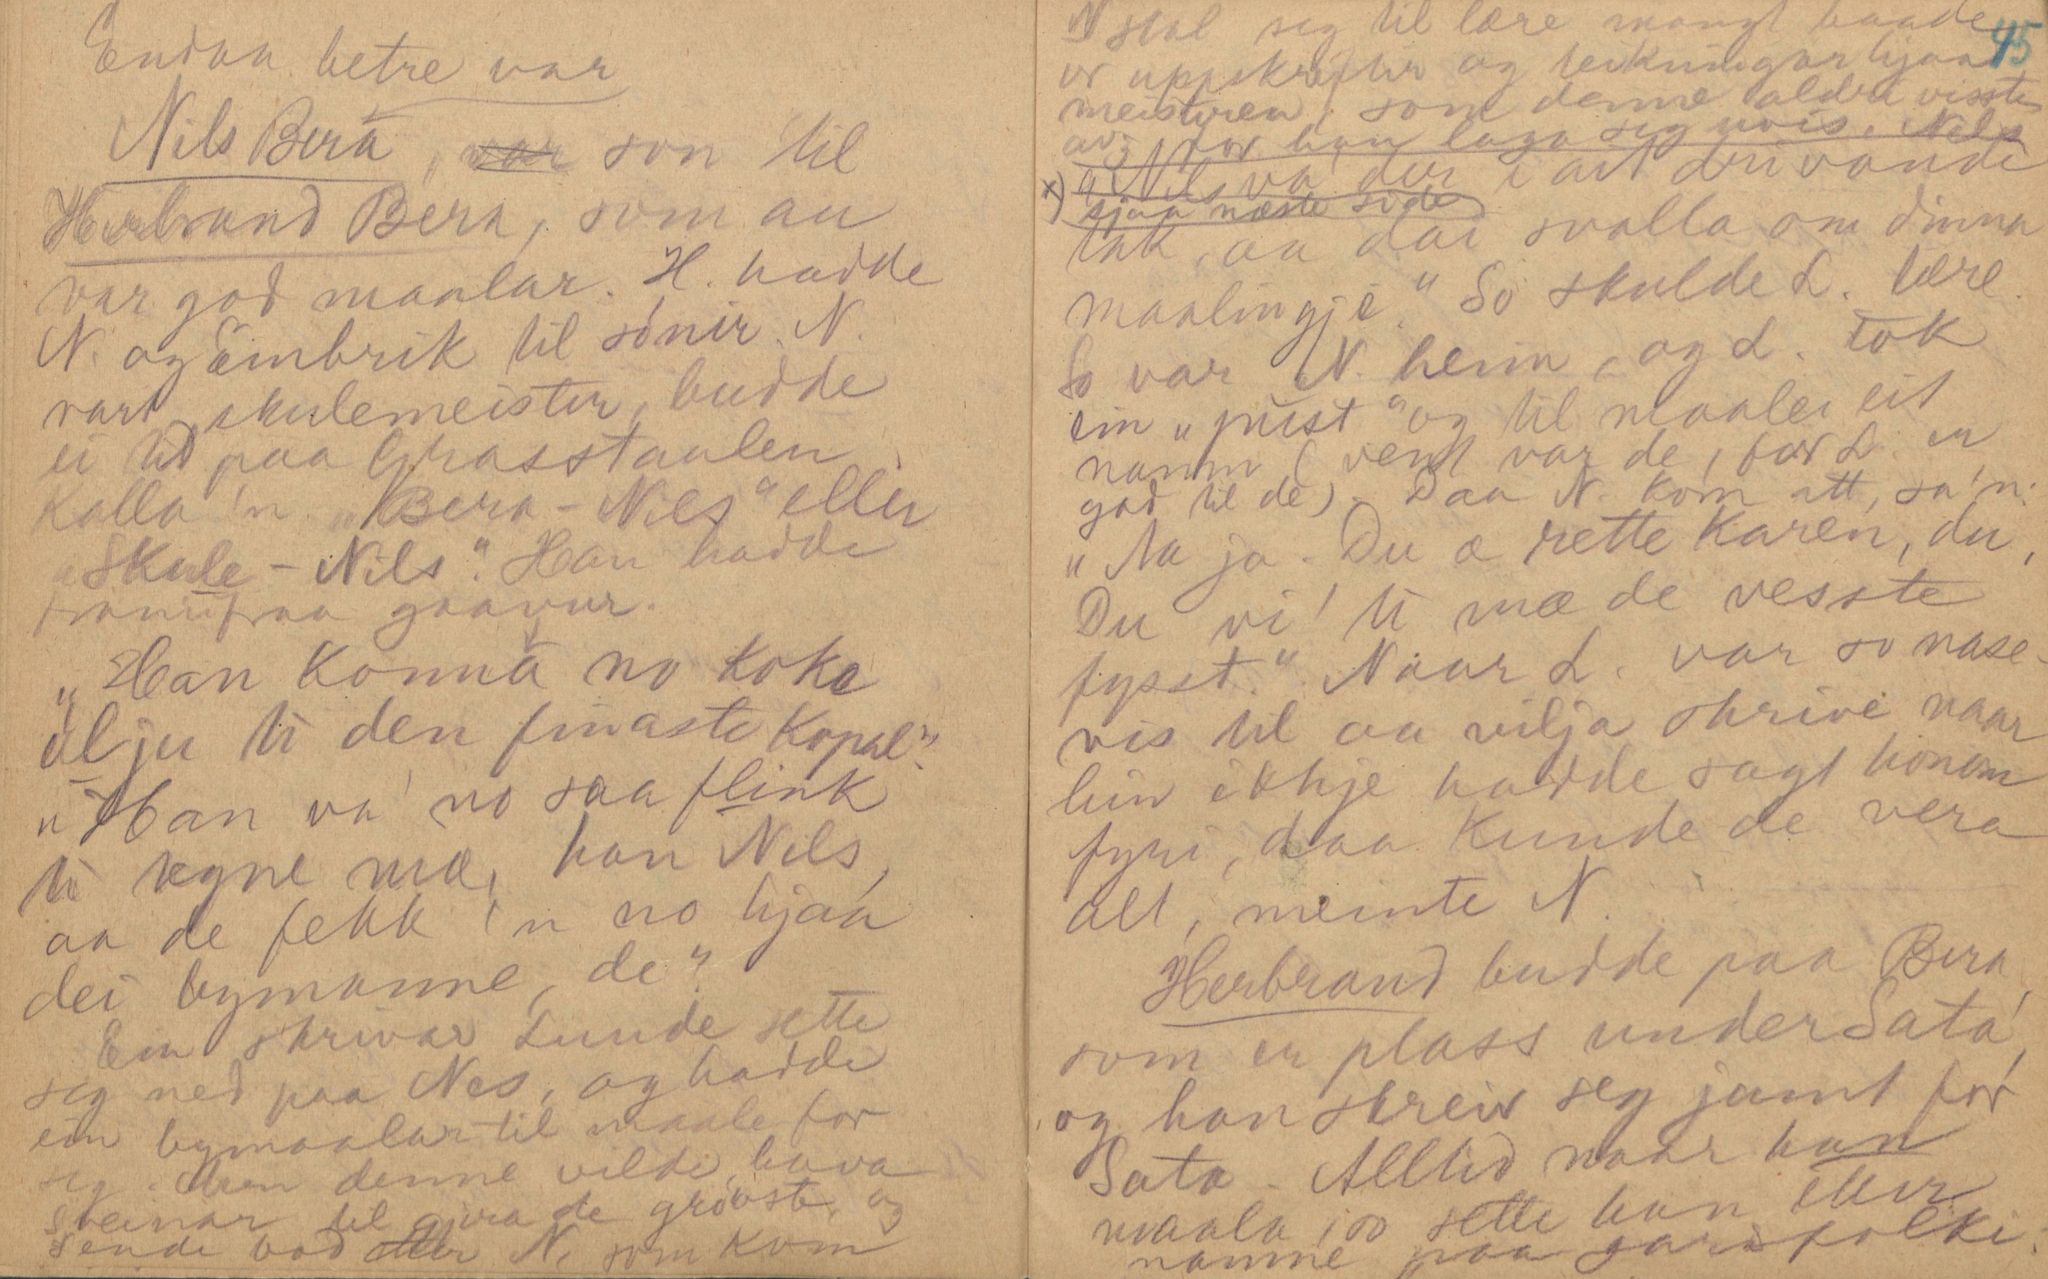 Endaa betre var
Nils Bera, var son til
Herbrand Bera, som au
var god maalar. H. hadde
N. og Embrik til sønir. N.
vart skulemeister, budde
ei tid paa Grasstaulen,
kalla 'n „Bera-Nils" eller
„Skule-Nils". Han hadde
framifraa gaavur.
„Han konna no koke
ølju ti den finaste kopal".
„Han va' no saa flink
ti tegne mæ, han Nils,
aa de fekk 'n no hjaa
dei bymanne, de".
Ein skrivar Lunde sette
seg ned paa Nes, og hadde
ein bymaalar til maale for
seg. Men denne vilde hava
ein til gjera de grøvste, og
sende bod etter N. som kom
45
N stal seg til lære mangt baade
or uppskrifter og teikningar hjaa
meisteren, som denne aldri visste
av, for han laga seg uvis. Nils
„Nils va' der i art drivande
x) sjaa næste side
tak, aa dai svalla om dinna
maalingje." So skulde L. lære.
So var N. heim, og L. tok
ein „pust" og til maale eit
namn (vent var de, for L. er
god til de). Daa N. kom att, sa 'n:
„Na ja. Du æ rette karen, du,
Du vi' ti mæ de vesste
fysst." Naar L. var so nase-
vis til aa vilja skrive naar
hin ikkje hadde sagt honom
fyri, daa kunde de vera
alt, meinte N.
Herbrand budde paa Bera,
som er plass under Sata,
og han skreiv seg jamt for
Sata. Alltid naar han
maala, so sette han etter
namne paa gardsfolki.